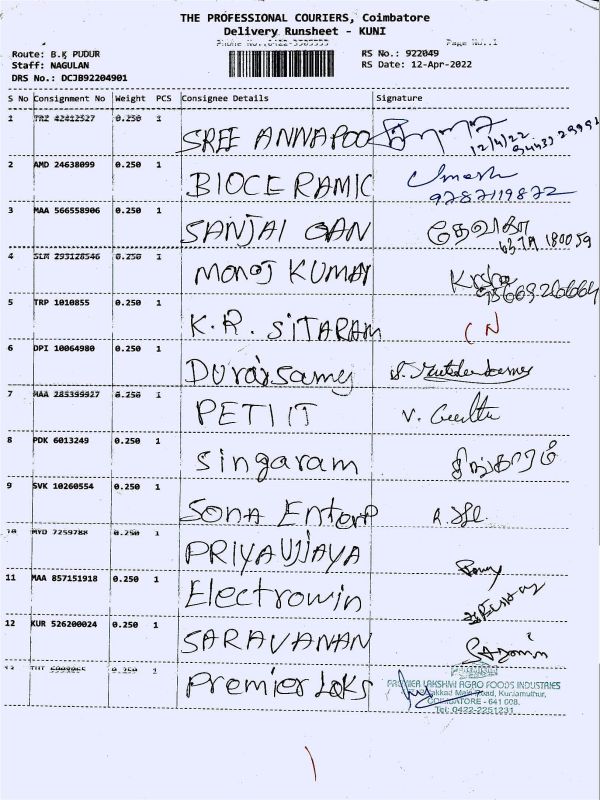 THE PROFESSIONAL COURIERS, Coimbatore
Delivery Runsheet - KUNI
Route: B.K PUDUR
Staff: NAGULAN
DRS No.: DCJB92204901
RS No.: 922049
RS Date: 12-Apr-2022
S No Consignment No Weight PCS Consignee Details Signature
1 TRZ 42412527 0.250 1 SREE ANNAPOO 12/4/22
2 AMD 24638099 0.250 1 BIOCERAMIC Umesh
9787119872
3 MAA 566558906 0.250 1 SANJAI GAN தேவகா
4 SLM 293128546 0.250 1 MANOJ KUMAR
5 TRP 1010855 0.250 1 K.R. SITARAM CN
6 DPI 10064980 0.250 1 Duraisamy
7 MAA 285399927 0.250 1 PETIIT V.
8 PDK 6013249 0.250 1 Singaram சிங்காரம்
9 SVK 10260554 0.250 1 SONA Enterp R.
10 MYD 7259788 0.250 1 PRIYAVIJAYA
11 MAA 857151918 0.250 1 Electrowin
12 KUR 526200024 0.250 1 SARAVANAN
13 0.250 1 Premier Laks
PREMIER LAKSHMI AGRO FOODS INDUSTRIES
Road, Kuniamuthur,
COIMBATORE - 641 008.
Tel: 0422-2251231